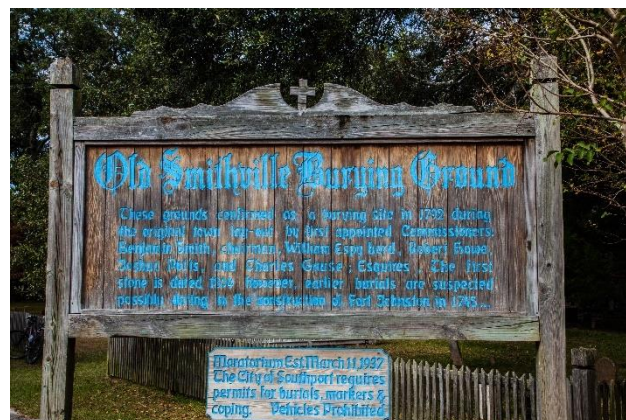 Old Smithville Burying Ground
These grounds confirmed as a burying site in 1792 during
the original town lay-out by first appointed Commissioners:
Benjamin Smith chairman, William Espy Lord, Robert Howe,
Joshua Potts, and Charles Gause; Esquires. The first
stone is dated however, earlier burials are suspected
possibly dating to the construction of Fort Johnston in 1745...
Moratorium Est. March 11, 1937
The City of Southport requires
permits for burials, markers &
coping. Vehicles Prohibited